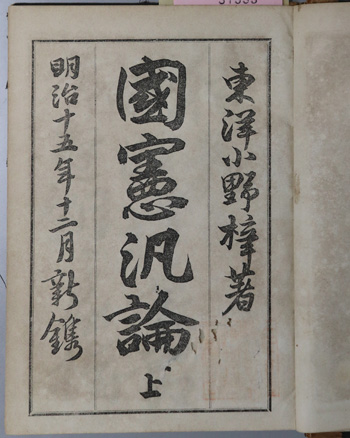 東洋小野梓著
國憲汎論
上
明治十五年十二月新鐫